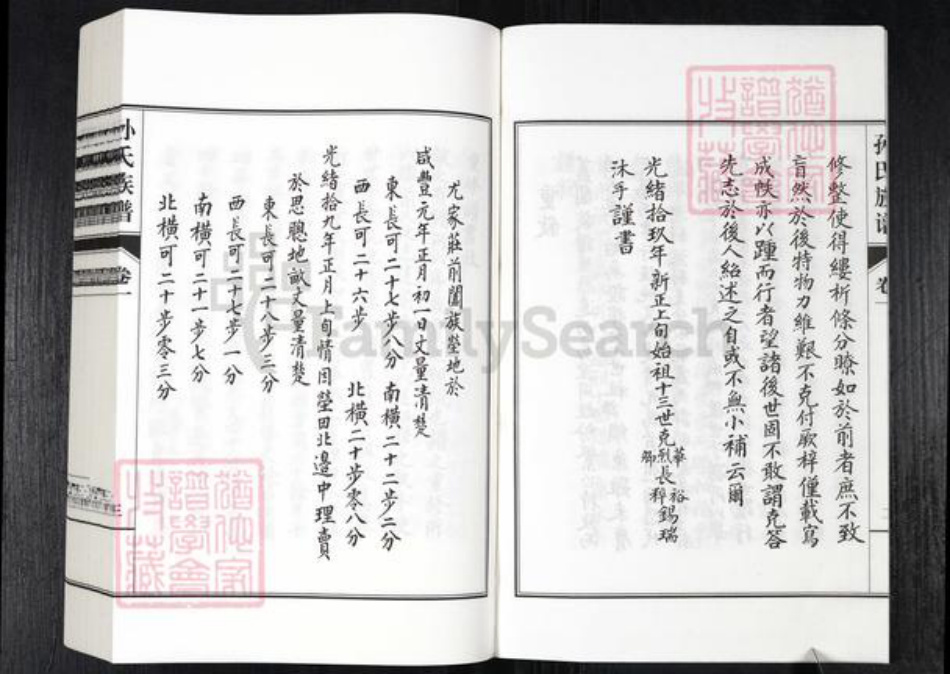 孙氏族谱
卷
修整使得縷析條分瞭如於前者庶不致
盲然於後特物力維艱不克付厥梓僅載寫
成帙亦以踵而行者望諸後世固不敢謂克答
先志於後人紹述之自或不無小補云爾
光緒拾玖年新正上旬始祖十三世克烈長
華裕
卿稡錫瑞
沐手謹書
尤家莊前闔族塋地於
咸豐元年正月初一日丈量清楚
東長可二十七步八分 南橫二十二步二分
西長可二十六步 北橫二十步零八分
光緒拾九年正月上旬情因塋田北邊中理賣
於思聰地畝丈量清楚
東長可二十八步三分
西長可二十七步一分
南橫可二十一步七分
北橫可二十步零三分
孙氏族譜
卷一
三
猶他家
譜學會
收藏
猶他家
譜學會
收藏
FamilySearch